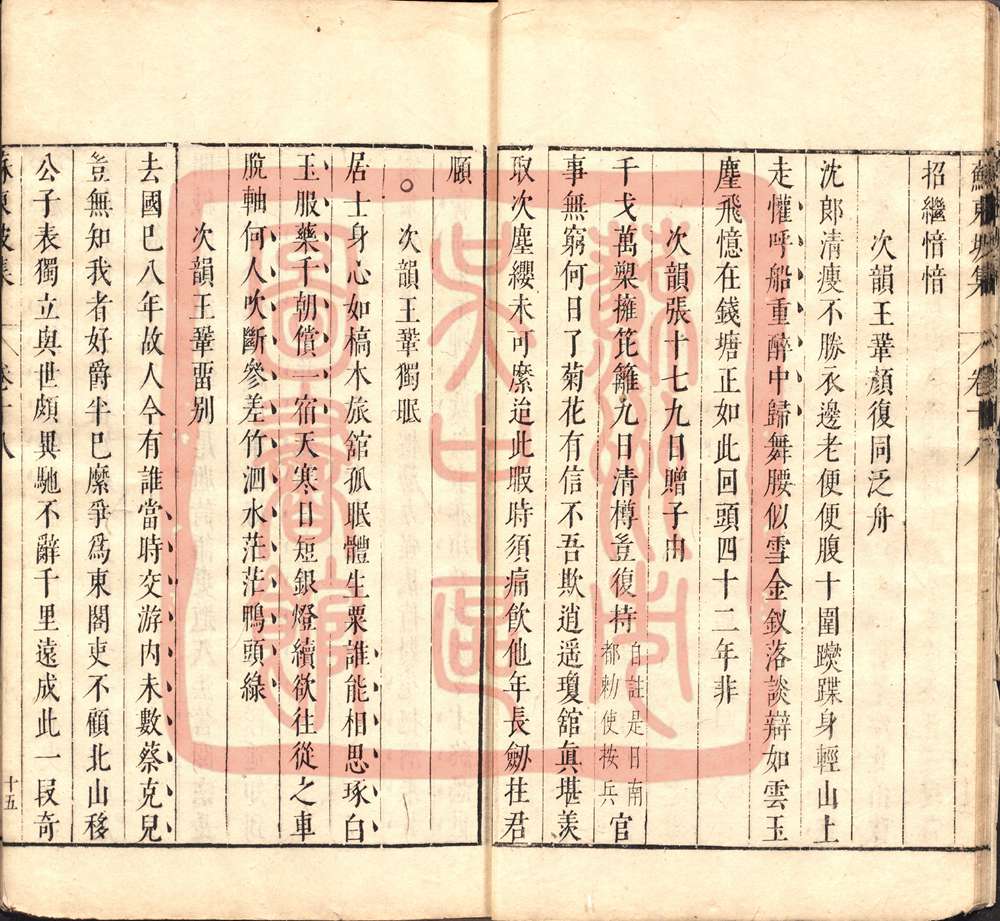 蘇東坡集 卷十八
招繼愔愔
次韻王鞏顏復同泛舟
沈郎清瘦不勝衣邊老便便腹十圍躞蹀身輕山上
走懽呼船重醉中歸舞腰似雪金釵落談辯如雲玉
麈飛憶在錢塘正如此回頭四十二年非
次韻張十七九日贈子由
千戈萬槊擁笓籬九日清樽豈復持自註是日南都勅使按兵官
事無窮何日了菊花有信不吾欺逍遥瓊舘眞堪羨
取次塵纓未可縻迨此暇時須痛飲他年長劒拄君
頤
次韻王鞏獨眠
居士身心如槁木旅舘孤眠體生粟誰能相思琢白
玉服藥千朝償一宿天寒日短銀燈續欲往從之車
脫軸何人吹斷參差竹泗水茫茫鴨頭綠
次韻王鞏畱别
去國已八年故人今有誰當時交游内未數蔡克兒
豈無知我者好爵半已縻爭爲東閣吏不顧北山移
公子表獨立與世頗異馳不辭千里遠成此一叚奇
蘇東坡集 卷十八
十五
蘇州大學圖書館